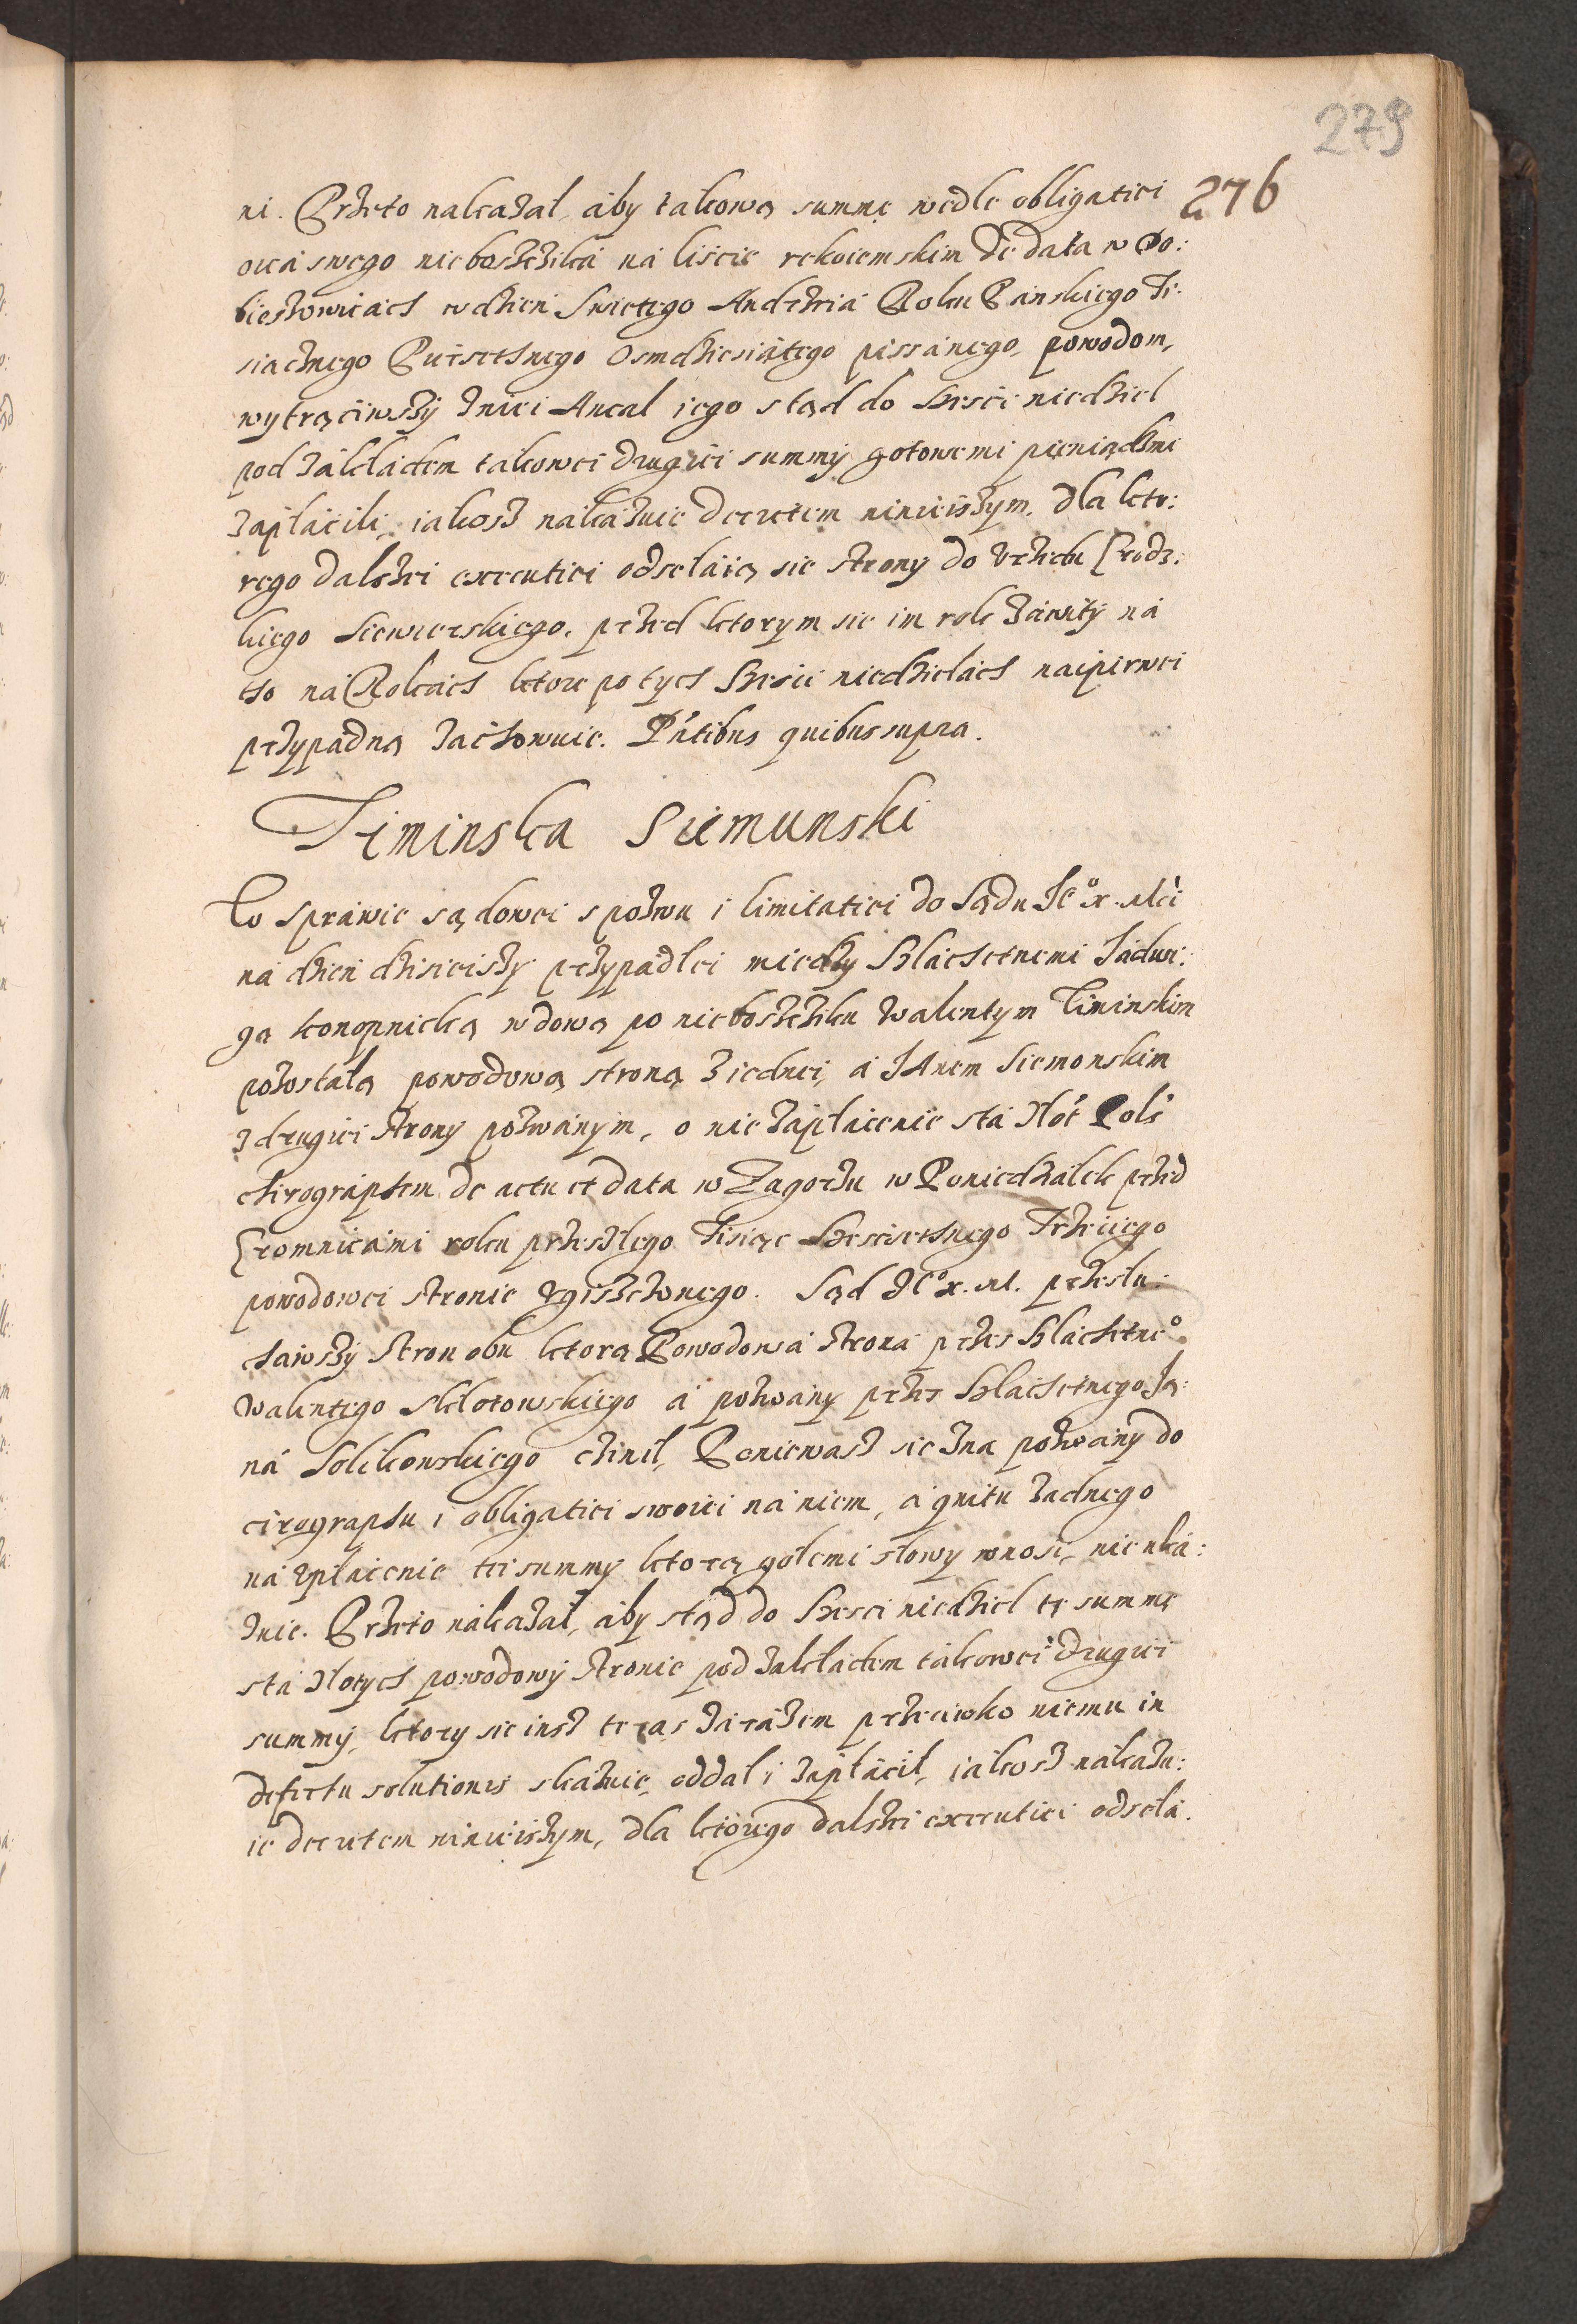 279
276
ni. Przeto nakazał, áby takową summę wedle obligatiei
oicá swego nieboszczika ná liscie rękoiemskim de data w Do:
bieszowicach w dzien Swiętego Andrzeiá Roku Panskiego Ti:
siącznego Piiecsetnego Osmdziesiątego pissánego, powodom,
wytrąciwszÿ zniei Ancal iego stąd do szesci niedziel
pod zákłádem takowei drugiei summÿ gotowemi pieniądzmi
zápłácili, iakosz nákázuie decretem ninieiszym. dla kto:
rego dalszei executiei odsełáią się strony do Vrzędu Grodz:
kiego Siewierskiego, przed ktorym się im rok zawitÿ ná
tho ná Rokách ktore po tych szesci niedzielách naipierwei
przypádną záchowuie. Pńtibus quibus supra.
Timinska Siemunski
W spráwie sądowei s pozwu i limitatiei do Sądu Ie͞o x. Mći
ná dzien dzisieiszÿ przypádłei międzÿ Szláchetnemi Jadwi:
gą Konopnicką wdową po nieboszcziku Walentym Timinskim
pozostałą powodową stroną z iednei, á IAnem Siemonskim
z drugiei strony pozwánÿm, o nie zápłácenie stá złót Pols
chirographem de actu et data w Zagorzu w Poniedziałek przed
Gromnicámi roku przeszłego Tisiąc Szescsetnego Trzeciego
powodowei stronie vgiszczonego. Sąd Ie͞o x. M. przesłu:
chawszÿ stron obu ktorą Powodowá stroná przes Szláchetne͞o
Walentego Skłotowskiego á pozwány przes Szláchetnego Ja:
ná Solikowskiego czinił, Poniewasz się zna pozwány do
cirographu i obligatiei swoiei ná niem, á quitu żadnego
ná zpłácenie tei summÿ ktorą gołemi słowy wnosi, nie uká:
zuie. Przeto nákazał, áby stąd do szesci niedziel tę summę
stá złotych powodowÿ stronie pod zakłádem tákowei drugiei
summÿ, ktory się insz teras zárázem przeciwko niemu in
defectu solutionis skázuie, oddał i zápłácił, iakosz nákazu:
ie decretem ninieiszym, dla ktorego dalszei executiei odsełá: